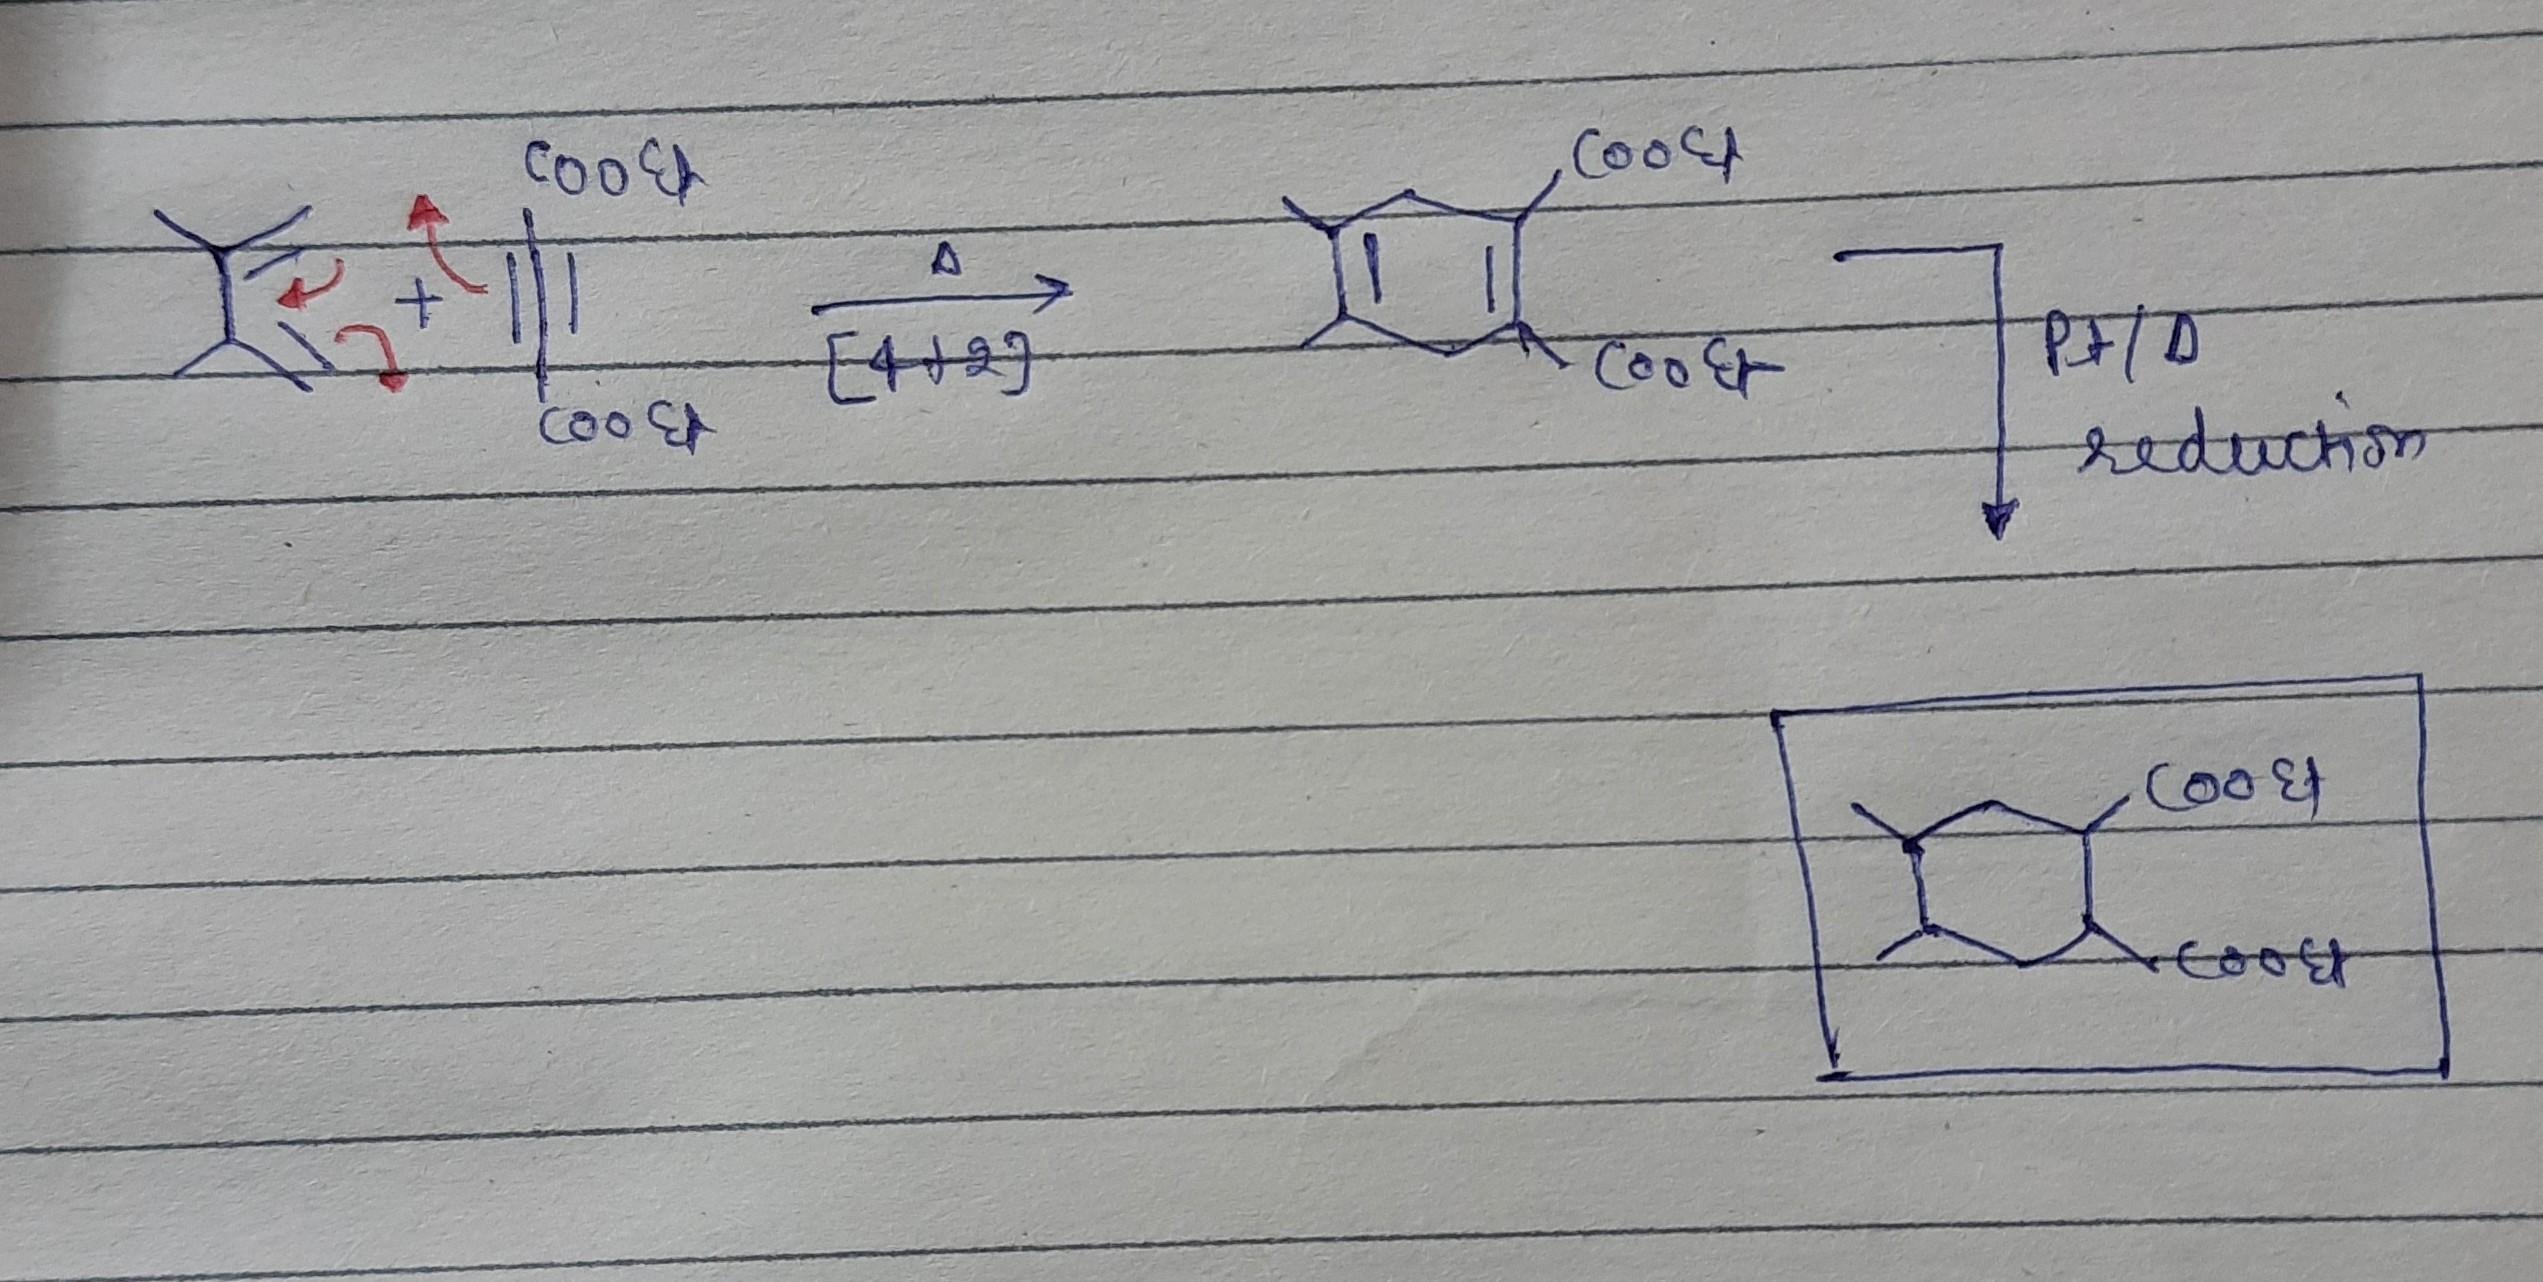 COOEt
+
Δ
[4+2]
COOEt
COOEt
COOEt
Pt/Δ
reduction
COOEt
COOEt